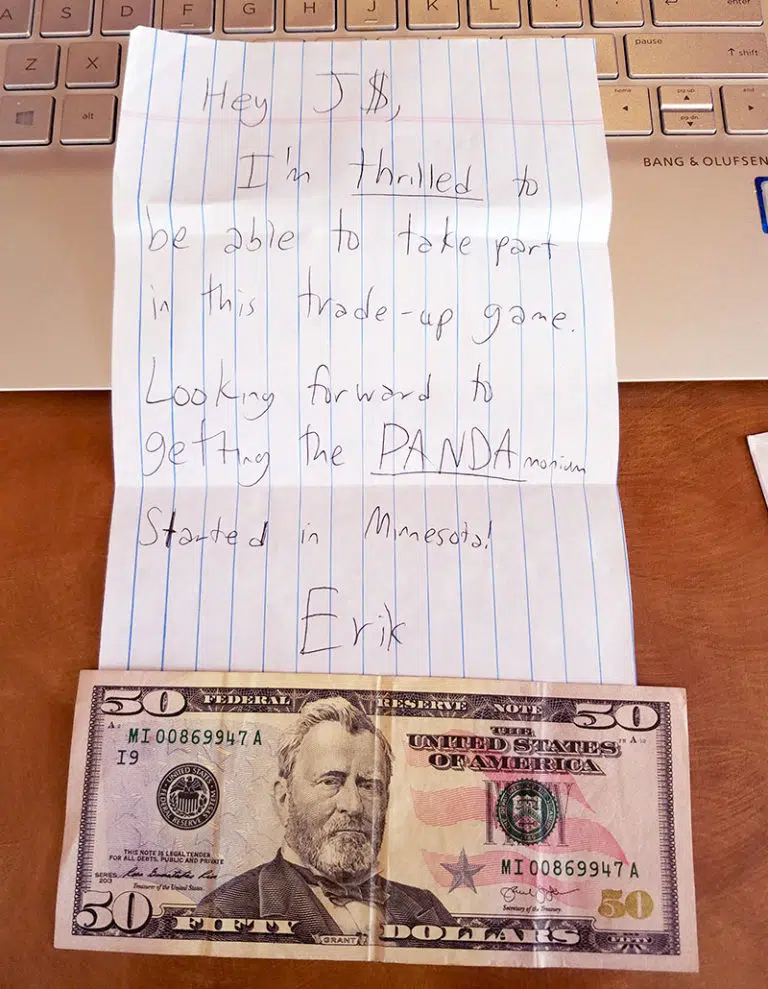 A S D F G H J K L enter
Z X pause ↑ shift
alt home pg up end
pg dn
BANG & OLUFSEN
Hey J$,
I'm thrilled to
be able to take part
in this trade-up game.
Looking forward to
getting the PANDAmonium
Started in Minnesota!
Erik
50 FEDERAL RESERVE NOTE 50
THE
UNITED STATES
OF AMERICA
MI 00869947 A
I9
THIS NOTE IS LEGAL TENDER
FOR ALL DEBTS, PUBLIC AND PRIVATE
MI 00869947 A
SERIES
2013
Treasurer of the United States
Secretary of the Treasury
50
50 FIFTY GRANT DOLLARS